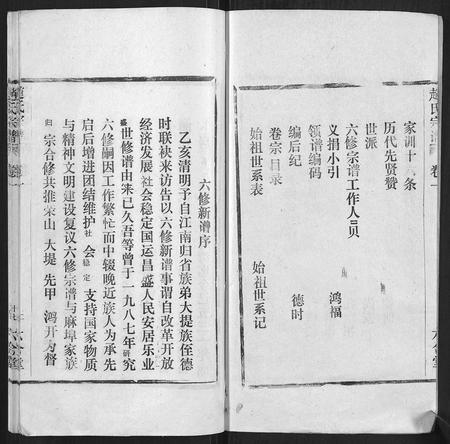 趙氏宗譜
卷一
家训十八条
历代先贤赞
世派
六修宗谱工作人员
义捐小引 鸿福
领谱编码
编后纪 德时
卷宗目录
始祖世系表 始祖世系记
六合堂
六修新谱序
乙亥清明予自江南归省族弟大提族侄德
时联袂来访告以六修新谱事谓自改革开放
经济发展社会稳定国运昌盛人民安居乐业
盛世修谱由来已久吾等曾于一九八七年研究
六修嗣因工作繁忙而中辍晚近族人为承先
启后增进团结维护社会稳定支持国家物质
与精神文明建设复议六修宗谱与麻埠家族
归宗合修共推荣山大堤先甲鸿开为督
趙氏宗譜
卷一
六合堂